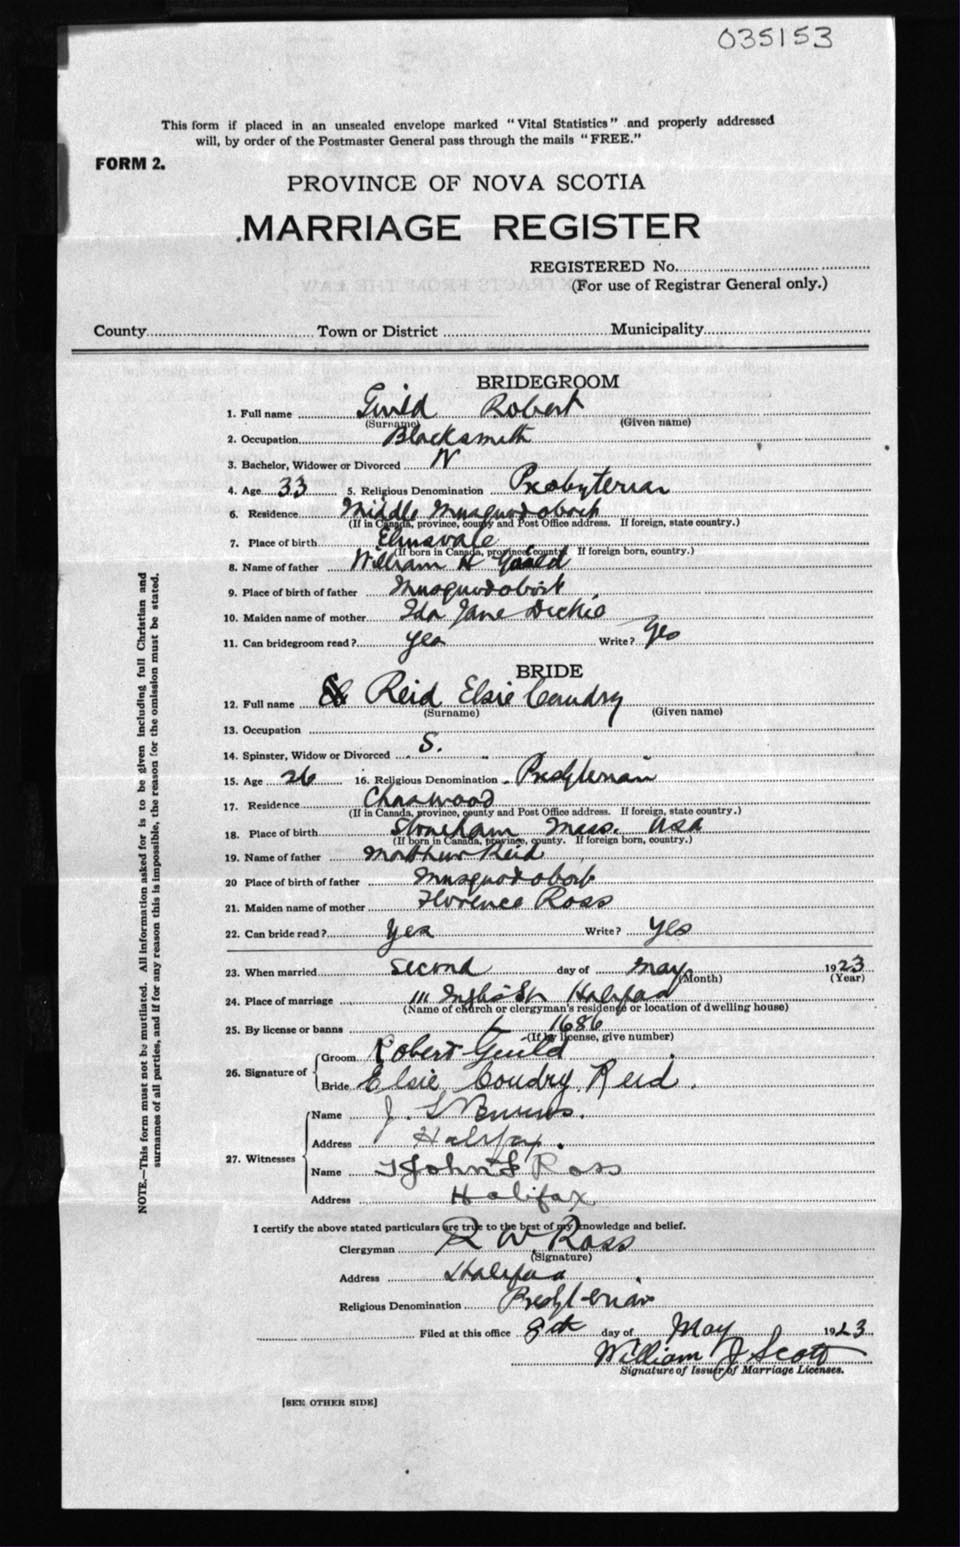 035153
This form if placed in an unsealed envelope marked "Vital Statistics" and properly addressed
will, by order of the Postmaster General pass through the mails "FREE."
FORM 2.
PROVINCE OF NOVA SCOTIA
MARRIAGE REGISTER
REGISTERED No.
(For use of Registrar General only.)
County Town or District Municipality
BRIDEGROOM
1. Full name Guild Robert
(Surname) (Given name)
2. Occupation Blacksmith
3. Bachelor, Widower or Divorced W
4. Age 33 5. Religious Denomination Presbyterian
6. Residence Middle Musquodoboit
(If in Canada, province, county and Post Office address. If foreign, state country.)
7. Place of birth Elmsvale
(If born in Canada, province county If foreign born, country.)
8. Name of father William H Guild
9. Place of birth of father Musquodoboit
10. Maiden name of mother Ida Jane Dickie
11. Can bridegroom read? yes Write? Yes
BRIDE
12. Full name Reid Elsie Coudry
(Surname) (Given name)
13. Occupation
14. Spinster, Widow or Divorced S.
15. Age 26 16. Religious Denomination Presbyterian
17. Residence Chaswood
(If in Canada, province, county and Post Office address. If foreign, state country.)
18. Place of birth Stoneham Mass. USA
(If born in Canada, province, county. If foreign born, country.)
19. Name of father Matthew Reid
20 Place of birth of father Musquodoboit
21. Maiden name of mother Florence Ross
22. Can bride read? yes Write? Yes
23. When married second day of May 1923
(Month) (Year)
24. Place of marriage 111 Inglis St Halifax
(Name of church or clergyman's residence or location of dwelling house)
25. By license or banns L 1686
(If by license, give number)
26. Signature of Groom Robert Guild
Bride Elsie Coudry Reid.
27. Witnesses
Name J.
Address Halifax.
Name John F Ross
Address Halifax
I certify the above stated particulars are true to the best of my knowledge and belief.
Clergyman R W Ross
(Signature)
Address Halifax
Religious Denomination Presbyterian
Filed at this office 8th day of May 1923
William J Scott
Signature of Issuer of Marriage Licenses.
[SEE OTHER SIDE]
NOTE.—This form must not be mutilated. All information asked for is to be given including full Christian and
surnames of all parties, and if for any reason this is impossible, the reason for the omission must be stated.